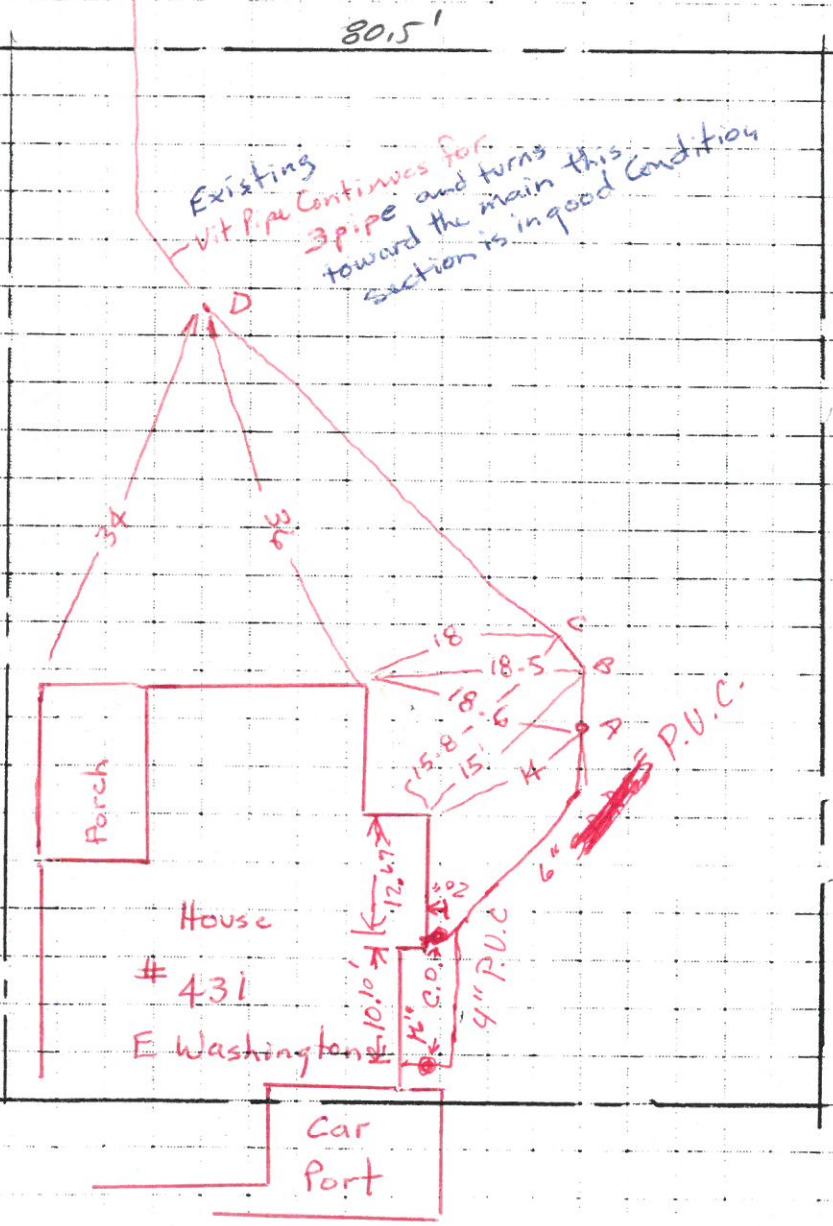 80.5'
Existing
Vit Pipe Continues for
3 pipe and turns
toward the main this
section is in good Condition
D
34
36
C
18
B
18-5
18-6
A
15-8
15'
14
6" P.U.C.
Porch
12.
House
# 431
E Washington
10.10'
C.O.
4" P.U.C
Car
Port